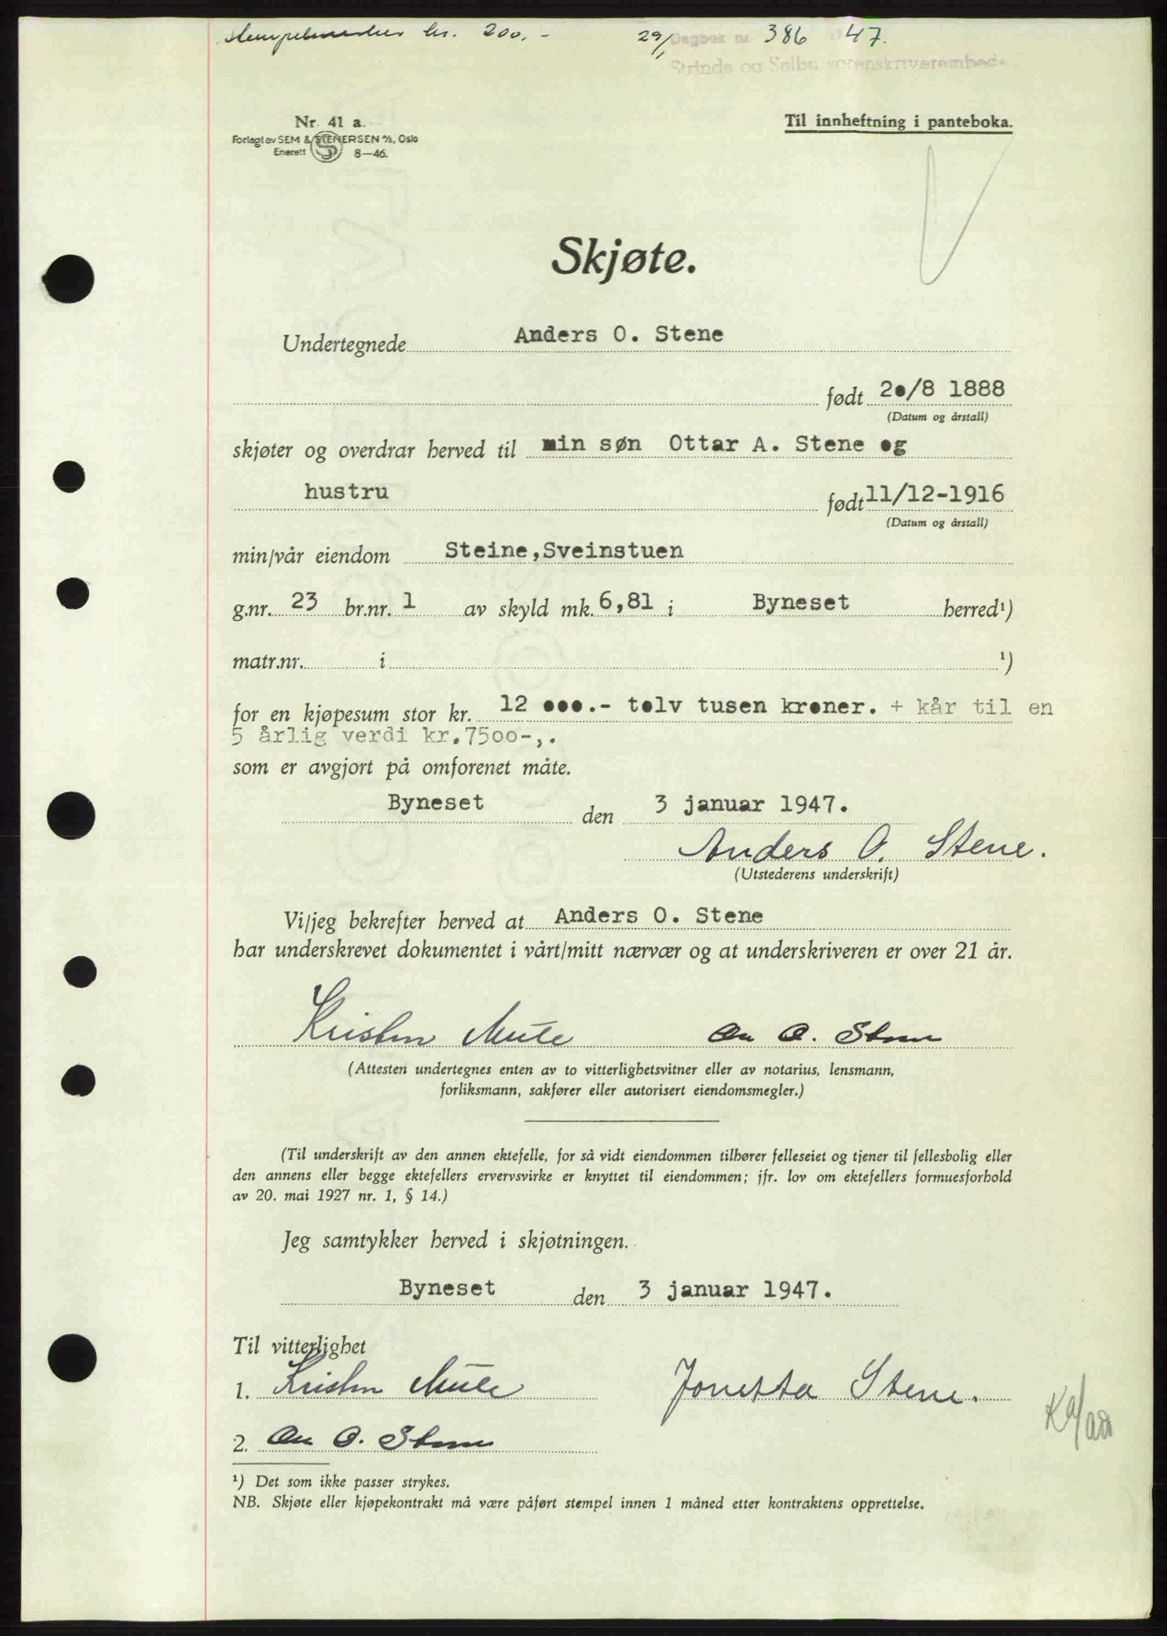 Stempelmerker kr. 200.-
29/1 Dagbok nr 386 47.
Strinda og Selbu sorenskriverembede
Nr. 41 a.
Forlagt av SEM & STENERSEN A/S, Oslo
Enerett 8—46.
Til innheftning i panteboka.
Skjøte.
Undertegnede Anders O. Stene
født 20/8 1888
(Datum og årstall)
skjøter og overdrar herved til min søn Ottar A. Stene og
hustru født 11/12-1916
(Datum og årstall)
min/vår eiendom Steine,Sveinstuen
g.nr. 23 br.nr. 1 av skyld mk. 6,81 i Byneset herred¹)
matr.nr. i ¹)
for en kjøpesum stor kr. 12 000.- tolv tusen kroner. + kår til en
5 årlig verdi kr.7500-,.
som er avgjort på omforenet måte.
Byneset den 3 januar 1947.
Anders O. Stene.
(Utstederens underskrift)
Vi/jeg bekrefter herved at Anders O. Stene
har underskrevet dokumentet i vårt/mitt nærvær og at underskriveren er over 21 år.
Kristen Mule O. Stene
(Attesten undertegnes enten av to vitterlighetsvitner eller av notarius, lensmann,
forliksmann, sakfører eller autorisert eiendomsmegler.)
(Til underskrift av den annen ektefelle, for så vidt eiendommen tilhører felleseiet og tjener til fellesbolig eller
den annens eller begge ektefellers ervervsvirke er knyttet til eiendommen; jfr. lov om ektefellers formuesforhold
av 20. mai 1927 nr. 1, § 14.)
Jeg samtykker herved i skjøtningen.
Byneset den 3 januar 1947.
Til vitterlighet
1. Kristen Mule Jonetta Stene.
2. O. Stene
¹) Det som ikke passer strykes.
NB. Skjøte eller kjøpekontrakt må være påført stempel innen 1 måned etter kontraktens opprettelse.